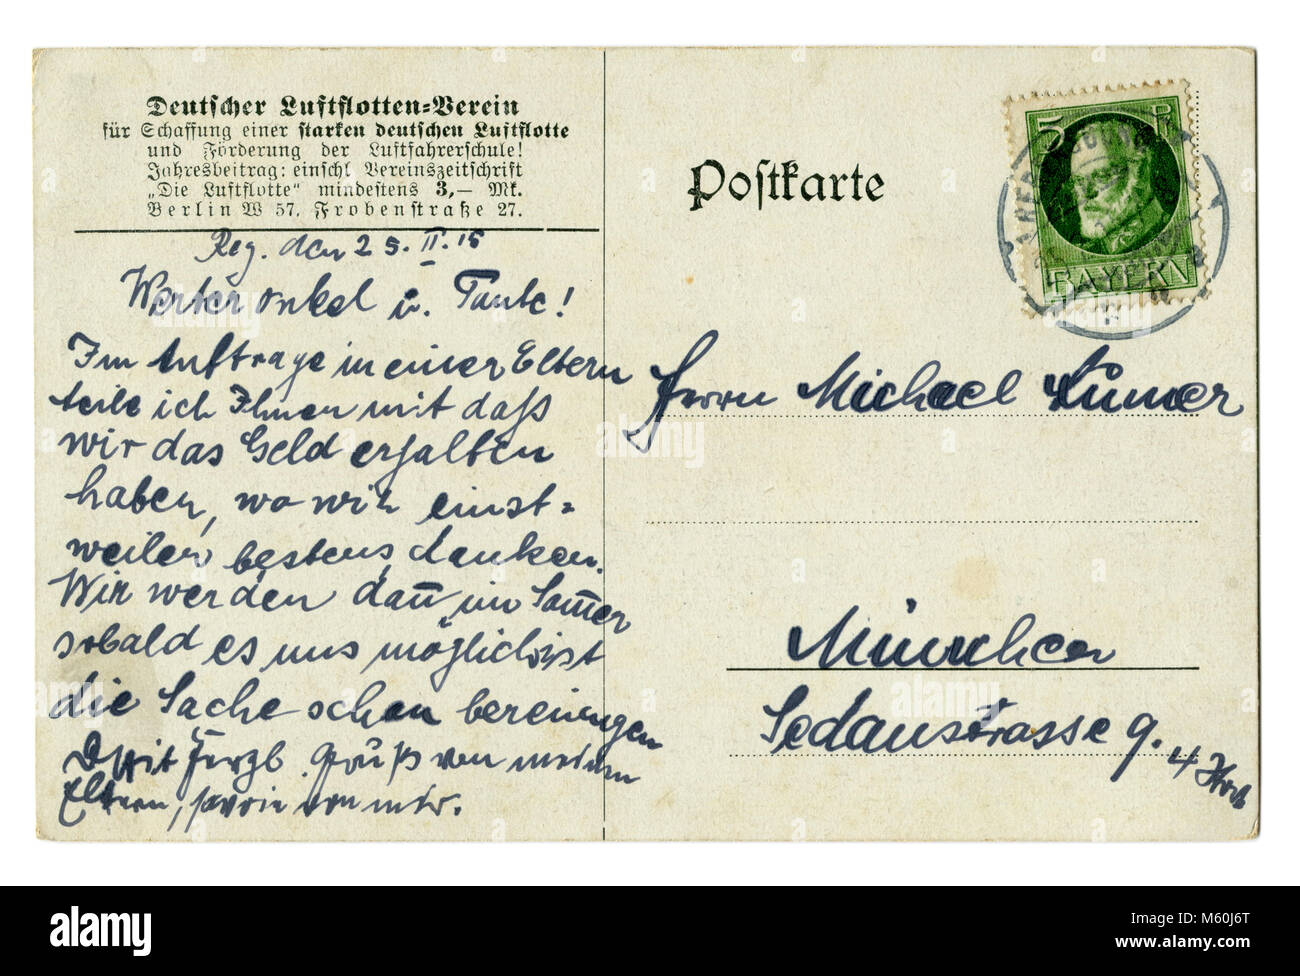 Deutscher Luftflotten=Verein
für Schaffung einer starken deutschen Luftflotte
und Förderung der Luftfahrerschule!
Jahresbeitrag: einschl Vereinszeitschrift
„Die Luftflotte“ mindestens 3,— Mk.
Berlin W 57, Frobenstraße 27.
Reg. den 25. II. 15
Werter onkel u. Tante!
Im Auftrage meiner Eltern
teile ich Ihnen mit daß
wir das Geld erhalten
haben, wo wir einst=
weilen bestens danken.
Wir werden dan̄ im Som̄er
sobald es uns möglich ist
die Sache schon bereinigen
Mit herzl. Gruß von meinen
Eltern, sowie von mir.
Postkarte
5 P
BAYERN
Herrn Michael
München
Sedanstrasse 9.
4
alamy
Image ID: M60J6T
www.alamy.com